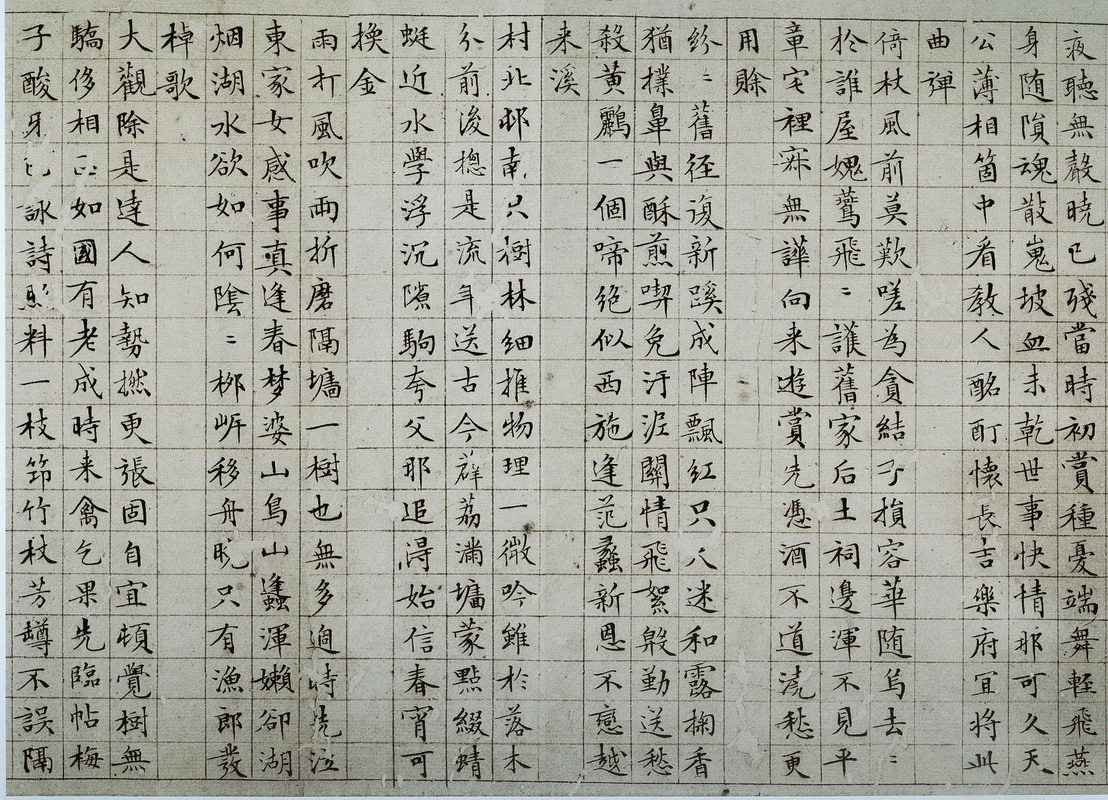 夜聽無聲曉已殘當時初賞種憂端舞輕飛燕
身随隕魂散嵬坡血未乾世事快情那可久天
公薄相箇中看教人酩酊懷長吉樂府宜將此
曲彈
倚杖風前莫歎嗟為貪結子損容華随烏去〻
於誰屋媿鷰飛〻護舊家后土祠邊渾不見平
章宅裡寂無譁向来遊賞先憑酒不道澆愁更
用賒
紛〻舊径復新蹊成陣飄紅只八迷和露掬香
猶撲鼻與酥煎喫免汙泥關情飛絮殷勤送愁
殺黄鸝一個啼絕似西施逢范蠡新恩不戀越
来溪
村北邨南只樹林細推物理一微吟雖於落木
分前後摠是流年送古今群荔滿墻蒙點綴蜻
蜓近水學浮沉隙駒夸父那追得始信春宵可
換金
雨打風吹兩折磨隔墻一樹也無多過時先泣
東家女感事真逢春梦婆山鳥山蠭渾嬾卻湖
烟湖水欲如何陰〻栁岸移舟晚只有漁郎發
棹歌
大觀除是達人知勢撚更張固自宜頓覺樹無
驕侈相正如國有老成時来禽乞果先臨帖梅
子酸牙已詠詩照料一枝笻竹杖芳罇不誤隔